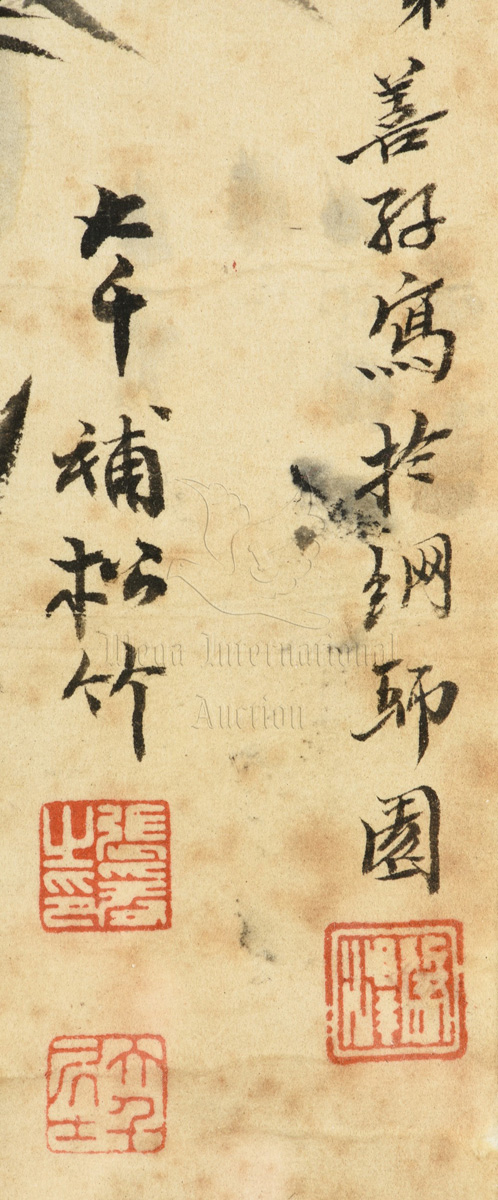 善孖寫於網師園
大千補松竹
張爰之印
大千居士
Mega International
Auction